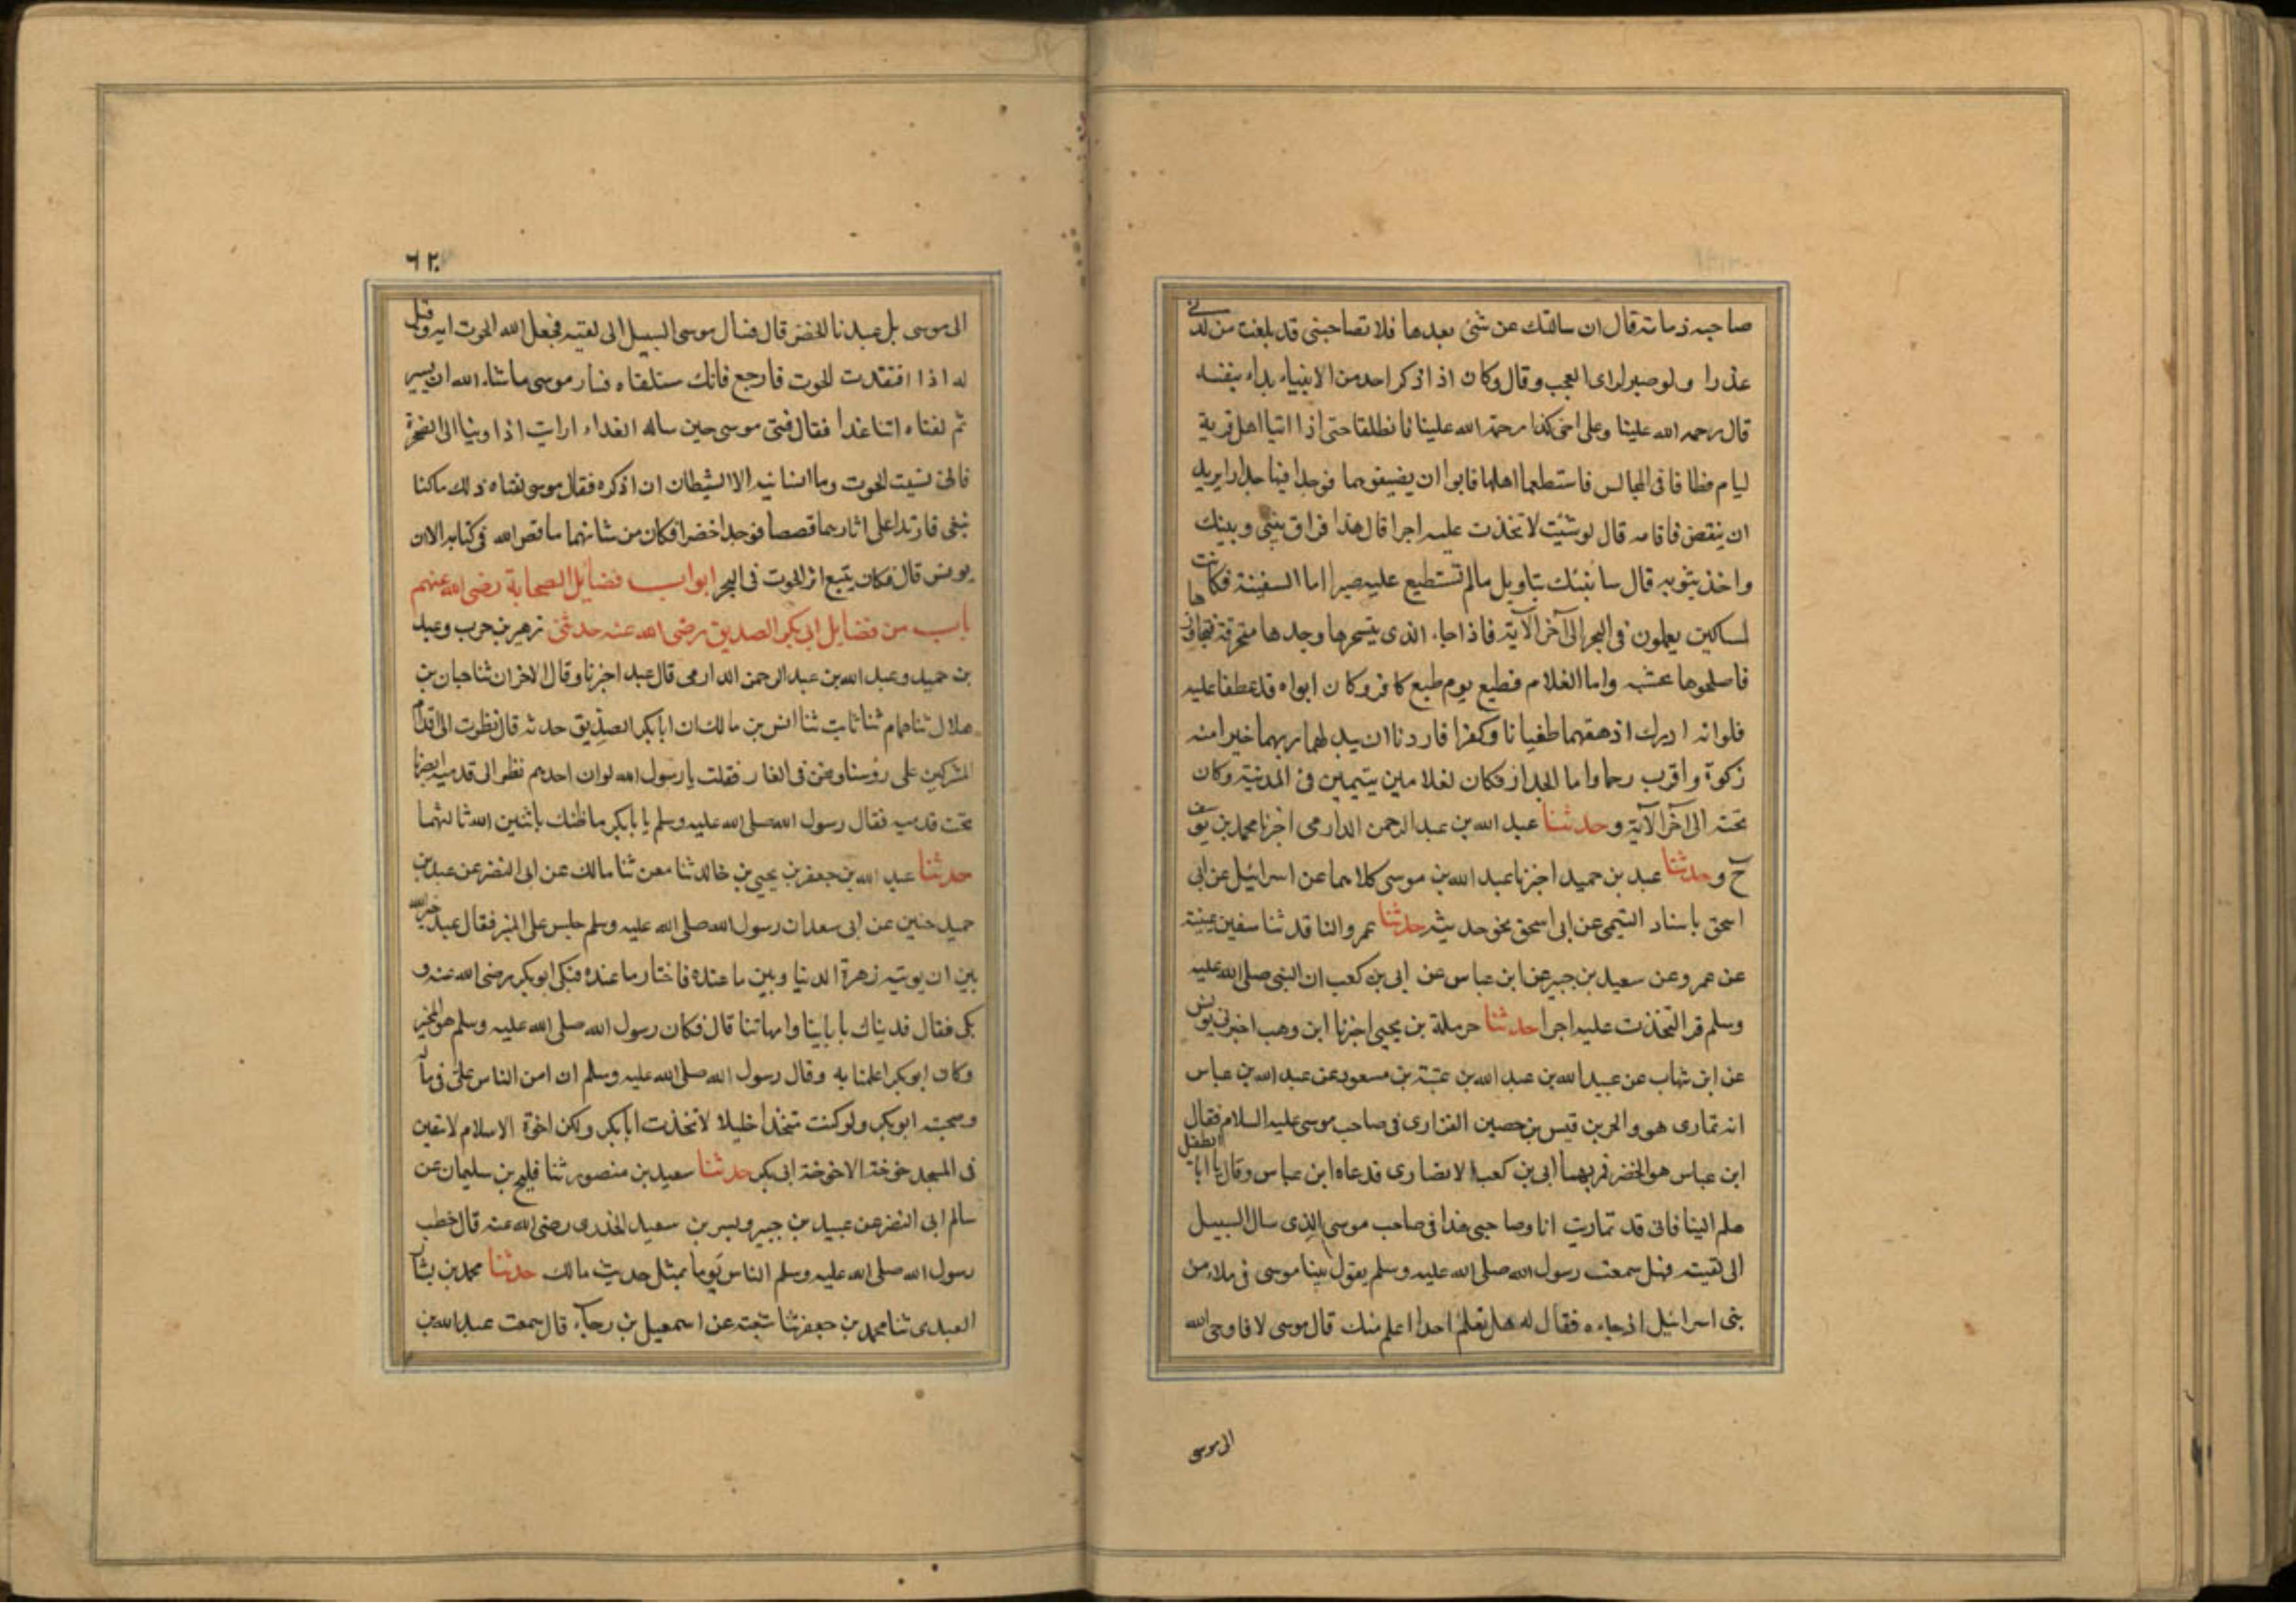 صاحبه ذمامة قال ان سالتك عن شئ بعدها فلا تصاحبني قد بلغت من لدني
عذرا ولو صبر لراى العجب وقال وكان اذا ذكر احد من الانبياء بداء بنفسه
قال رحمه الله علينا وعلى اخى كذا رحمة الله علينا فانطلقا حتى اذا اتيا اهل قرية
ليام فطافا فى المجالس فاستطعما اهلها فابوا ان يضيفوهما فوجدا فيها جدارا يريد
ان ينقض فاقامه قال لو شئت لاتخذت عليه اجرا قال هذا فراق بيني وبينك
واخذ بثوبه قال سانبئك بتاويل مالم تستطيع عليه صبرا اما السفينة فكانت
لمساكين يعملون فى البحر الى آخر الآية فاذا جاء الذى يتسخرها وجدها منخرقة فتجاوزها
فاصلحوها بخشبه واما الغلام فطبع يوم طبع كافر وكان ابواه قد عطفا عليه
فلو انه ادرك ارهقهما طغيانا وكفرا فاردنا ان يبدلهما ربهما خيرا منه
زكوة واقرب رحما واما الجدار فكان لغلامين يتيمين فى المدينة وكان
تحته الى آخر الآية وحدثنا عبد الله بن عبد الرحمن الدارمى اخبرنا محمد بن يوسف
ح وحدثنا عبد بن حميد اخبرنا عبد الله بن موسى كلاهما عن اسرائيل عن ابى
اسحق باسناد التيمى عن ابى اسحق نحو حديثه حدثنا عمرو الناقد ثنا سفين عيينة
عن عمرو عن سعيد بن جبير عن ابن عباس عن ابى بن كعب ان النبى صلى الله عليه
وسلم قرا لتخذت عليه اجرا حدثنا حرملة بن يحيى اخبرنا ابن وهب اخبرنى يونس
عن ابن شهاب عن عبيد الله بن عبد الله بن عتبة بن مسعود عن عبد الله بن عباس
انه تمارى هو والحر بن قيس بن حصين الفزارى فى صاحب موسى عليه السلام فقال
ابن عباس هو الخضر فربهما ابى بن كعب الانصارى فدعاه ابن عباس وقال يا ابا الطفيل
هلم الينا فانى قد تماريت انا وصاحبى هذا فى صاحب موسى الذى سال السبيل
الى لقيته فهل سمعت رسول الله صلى الله عليه وسلم يقول بينا موسى فى ملاء من
بنى اسرائيل اذ جاءه فقال له هل تعلم احدا اعلم منك قال موسى لا فاوحى الله
الى موسى
٦٢
الى موسى بل عبدنا الخضر قال فسال موسى السبيل الى لقيه فجعل الله الحوت ايه وقيل
له اذا افتقدت الحوت فارجع فانك ستلقاه فسار موسى ماشاء الله ان يسير
ثم لفتاه اتنا غدا فقال فتى موسى حين ساله الغداء ارايت اذ اوينا الى الصخرة
فانى نسيت الحوت وما انسانيه الا الشيطان ان اذكره فقال موسى لفتاه ذلك ماكنا
نبغى فارتدا على اثارهما قصصا فوجدا خضرا فكان من شانهما ما قص الله فى كتابه الا ان
يونس قال فكان يتبع اثر الحوت فى البحر ابواب فضايل الصحابة رضى الله عنهم
باب من فضايل ابى بكر الصديق رضى الله عنه حدثنى زهير بن حرب وعبد
بن حميد وعبد الله بن عبد الرحمن الدارمى قال عبد اخبرنا وقال الاخران ثنا حبان بن
هلال ثنا همام ثنا ثابت ثنا انس بن مالك ان ابا بكر الصديق حدثه قال نظرت الى اقدام
المشركين على رؤسنا ونحن فى الغار فقلت يا رسول الله لو ان احدهم نظر الى قدميه ابصرنا
تحت قدميه فقال رسول الله صلى الله عليه وسلم يا بابكر ما ظنك باثنين الله ثالثهما
حدثنا عبد الله بن جعفر بن يحيى بن خالد ثنا معن ثنا مالك عن ابى النضر عن عبيد بن
حميد حنين عن ابى سعد ان رسول الله صلى الله عليه وسلم جلس على المنبر فقال عبد خيره الله
بين ان يوتيه زهرة الدنيا وبين ما عنده فاختار ما عنده فبكى ابو بكر رضى الله عنه و
بكى فقال فديناك بابائنا وامهاتنا قال فكان رسول الله صلى الله عليه وسلم هو المخير
وكان ابو بكر اعلمنا به وقال رسول الله صلى الله عليه وسلم ان امن الناس على فى ماله
وصحبته ابو بكر ولو كنت متخذا خليلا لاتخذت ابا بكر ولكن اخوة الاسلام لا تبقين
فى المسجد خوخة الا خوخة ابى بكر حدثنا سعيد بن منصور ثنا فليح بن سليمان عن
سالم ابى النضر عن عبيد بن جبير وبسر بن سعيد الخدرى رضى الله عنه قال خطب
رسول الله صلى الله عليه وسلم الناس يوما بمثل حديث مالك حدثنا محمد بن بشار
العبدى ثنا محمد بن جعفر ثنا شعبة عن اسمعيل بن رجاء قال سمعت عبد الله بن